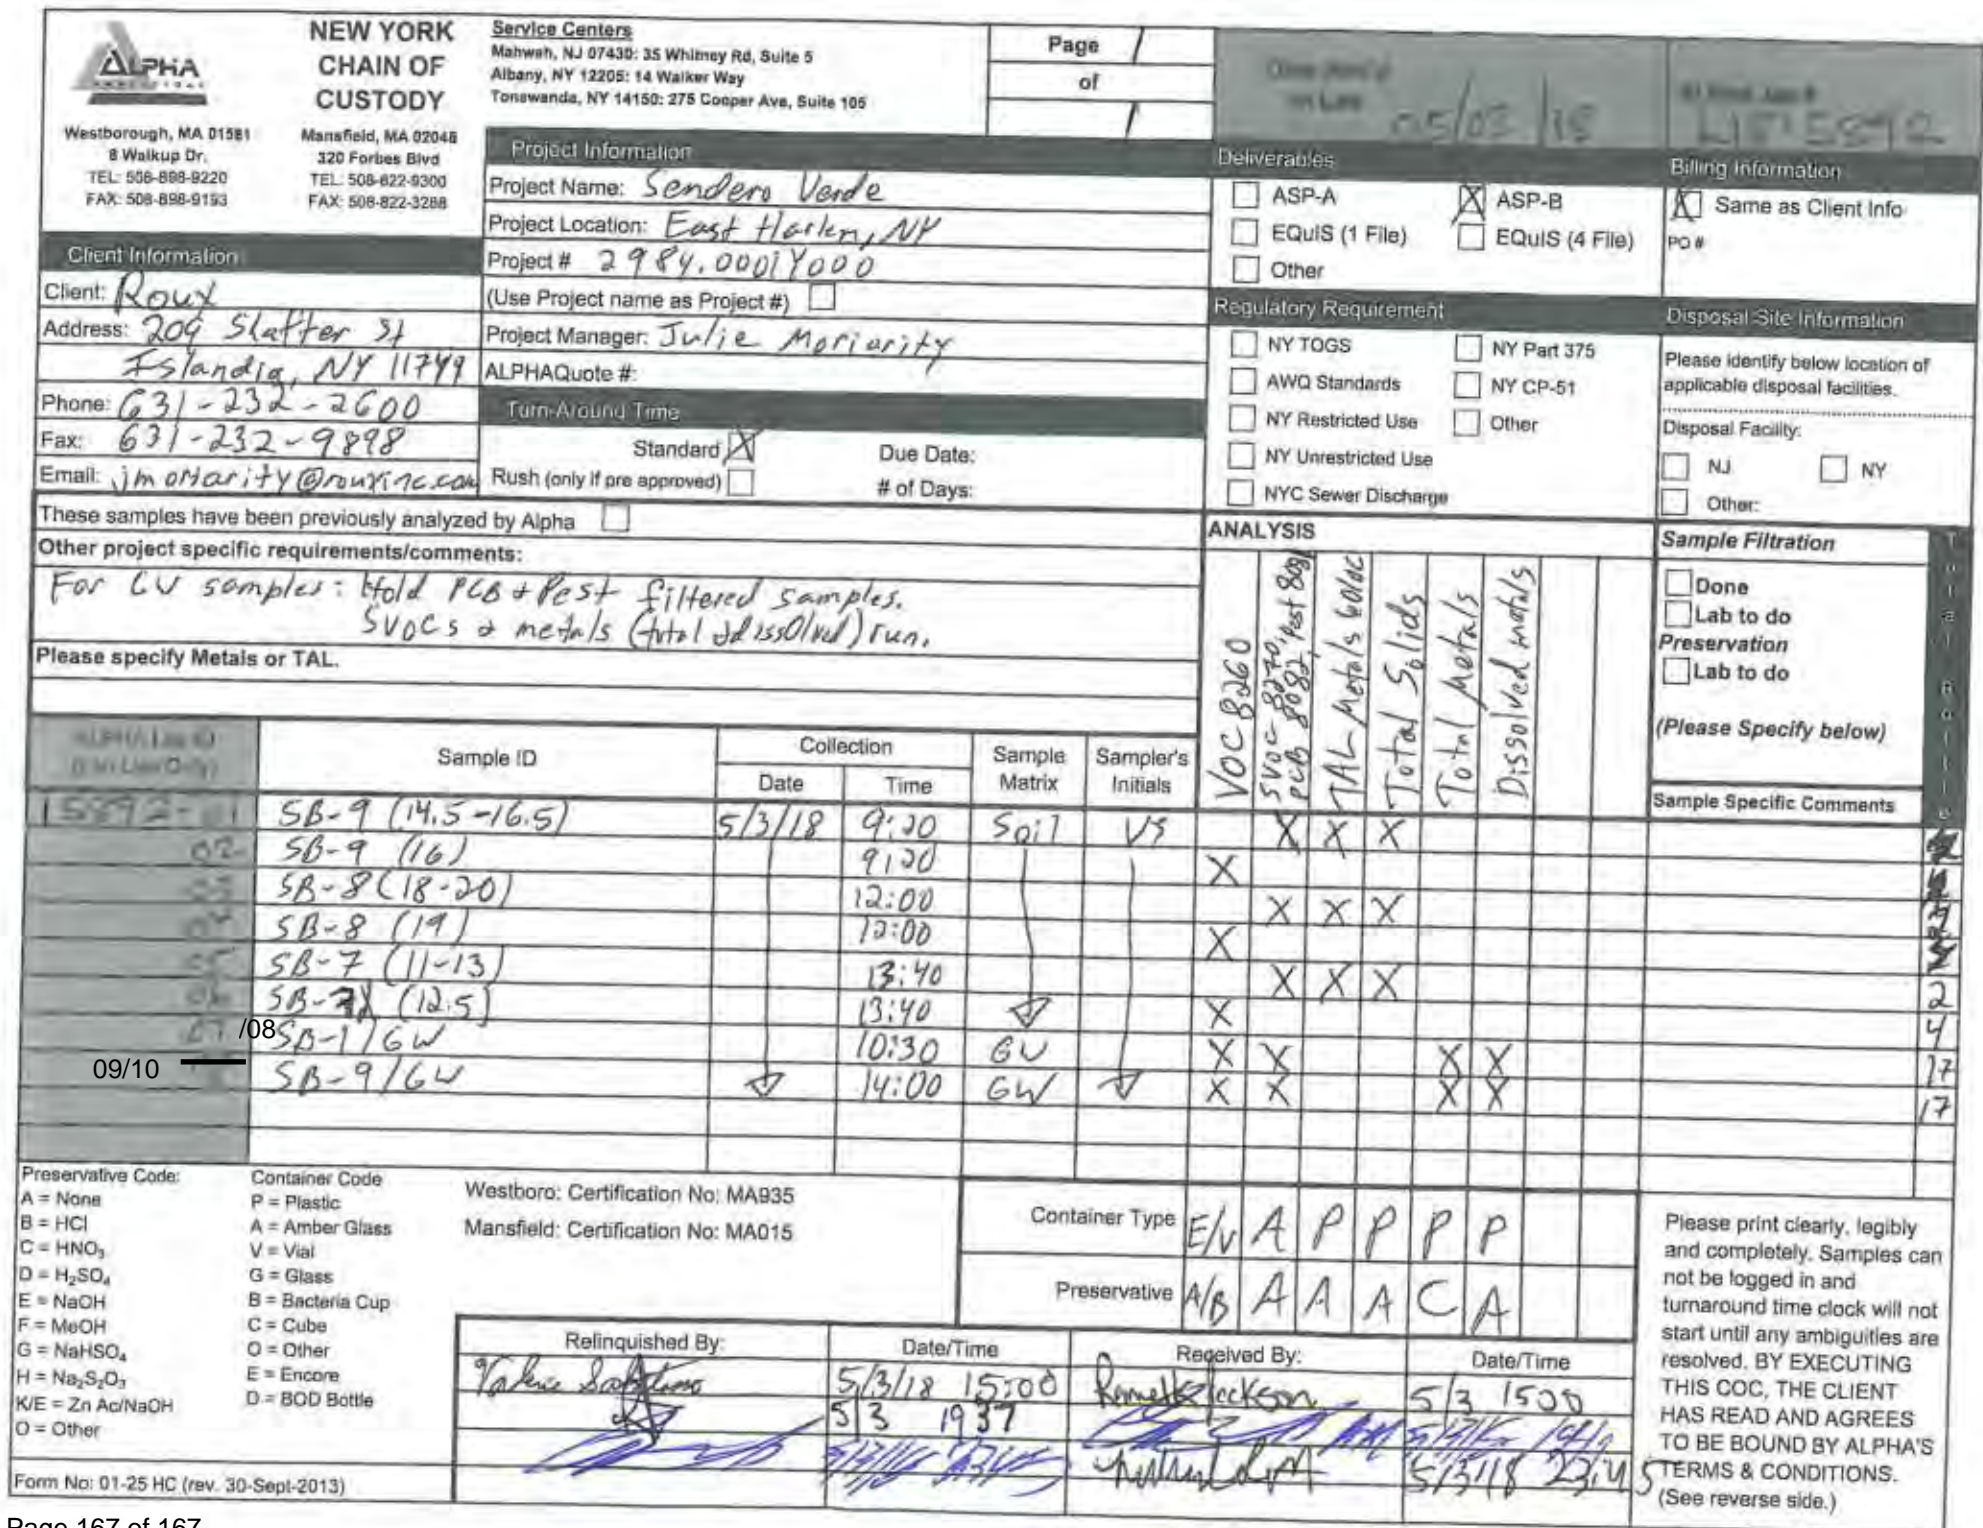 ALPHA
NEW YORK
CHAIN OF
CUSTODY
Westborough, MA 01581
8 Walkup Dr.
TEL: 508-898-9220
FAX: 508-898-9193
Mansfield, MA 02048
320 Forbes Blvd
TEL: 508-822-9300
FAX: 508-822-3288
Service Centers
Mahwah, NJ 07430: 35 Whitney Rd, Suite 5
Albany, NY 12205: 14 Walker Way
Tonawanda, NY 14150: 275 Cooper Ave, Suite 105
Page 1
of
1
05/03/18
L1815892
Project Information
Project Name: Sendero Verde
Project Location: East Harlem, NY
Project # 2984.0001Y000
(Use Project name as Project #)
Project Manager: Julie Moriarity
ALPHAQuote #:
Client Information
Client: Roux
Address: 209 Shafter St
Islandia, NY 11749
Phone: 631-232-2600
Fax: 631-232-9898
Email: jmoriarity@rouxinc.com
Turn-Around Time
Standard X Due Date:
Rush (only if pre approved) # of Days:
Deliverables
ASP-A X ASP-B
EQuIS (1 File) EQuIS (4 File)
Other
Billing Information
X Same as Client Info
PO #
Regulatory Requirement
NY TOGS NY Part 375
AWQ Standards NY CP-51
NY Restricted Use Other
NY Unrestricted Use
NYC Sewer Discharge
Disposal Site Information
Please identify below location of
applicable disposal facilities.
Disposal Facility:
NJ NY
Other:
These samples have been previously analyzed by Alpha
Other project specific requirements/comments:
For GW samples: Hold PCB + Pest filtered samples.
SVOCs + metals (total + dissolved) run.
Please specify Metals or TAL.
ANALYSIS
VOC 8260
SVOC 8270, Pest 8081
PCB 8082
TAL Metals 6010C
Total Solids
Total Metals
Dissolved metals
Sample Filtration
Done
Lab to do
Preservation
Lab to do
(Please Specify below)
Sample Specific Comments
ALPHA Lab ID
(Lab Use Only)
Sample ID
Collection
Date Time
Sample
Matrix
Sampler's
Initials
15892-01 SB-9 (14.5-16.5) 5/3/18 9:20 Soil VS X X X
02 SB-9 (16) 9:20 X
03 SB-8 (18-20) 12:00 X X X
04 SB-8 (19) 12:00 X
05 SB-7 (11-13) 13:40 X X X 2
06 SB-7 (12.5) 13:40 X 4
07 /08 SB-1/GW 10:30 GW X X X X 17
09/10 SB-9/GW 14:00 GW X X X X 17
Preservative Code:
A = None
B = HCl
C = HNO3
D = H2SO4
E = NaOH
F = MeOH
G = NaHSO4
H = Na2S2O3
K/E = Zn Ac/NaOH
O = Other
Container Code
P = Plastic
A = Amber Glass
V = Vial
G = Glass
B = Bacteria Cup
C = Cube
O = Other
E = Encore
D = BOD Bottle
Westboro: Certification No: MA935
Mansfield: Certification No: MA015
Container Type E/V A P P P P
Preservative A/B A A A C A
Relinquished By: Date/Time Received By: Date/Time
5/3/18 15:00 5/3 1500
5/3 1937
5/3/18 23:45
Please print clearly, legibly
and completely. Samples can
not be logged in and
turnaround time clock will not
start until any ambiguities are
resolved. BY EXECUTING
THIS COC, THE CLIENT
HAS READ AND AGREES
TO BE BOUND BY ALPHA'S
TERMS & CONDITIONS.
(See reverse side.)
Form No: 01-25 HC (rev. 30-Sept-2013)
Page 167 of 167